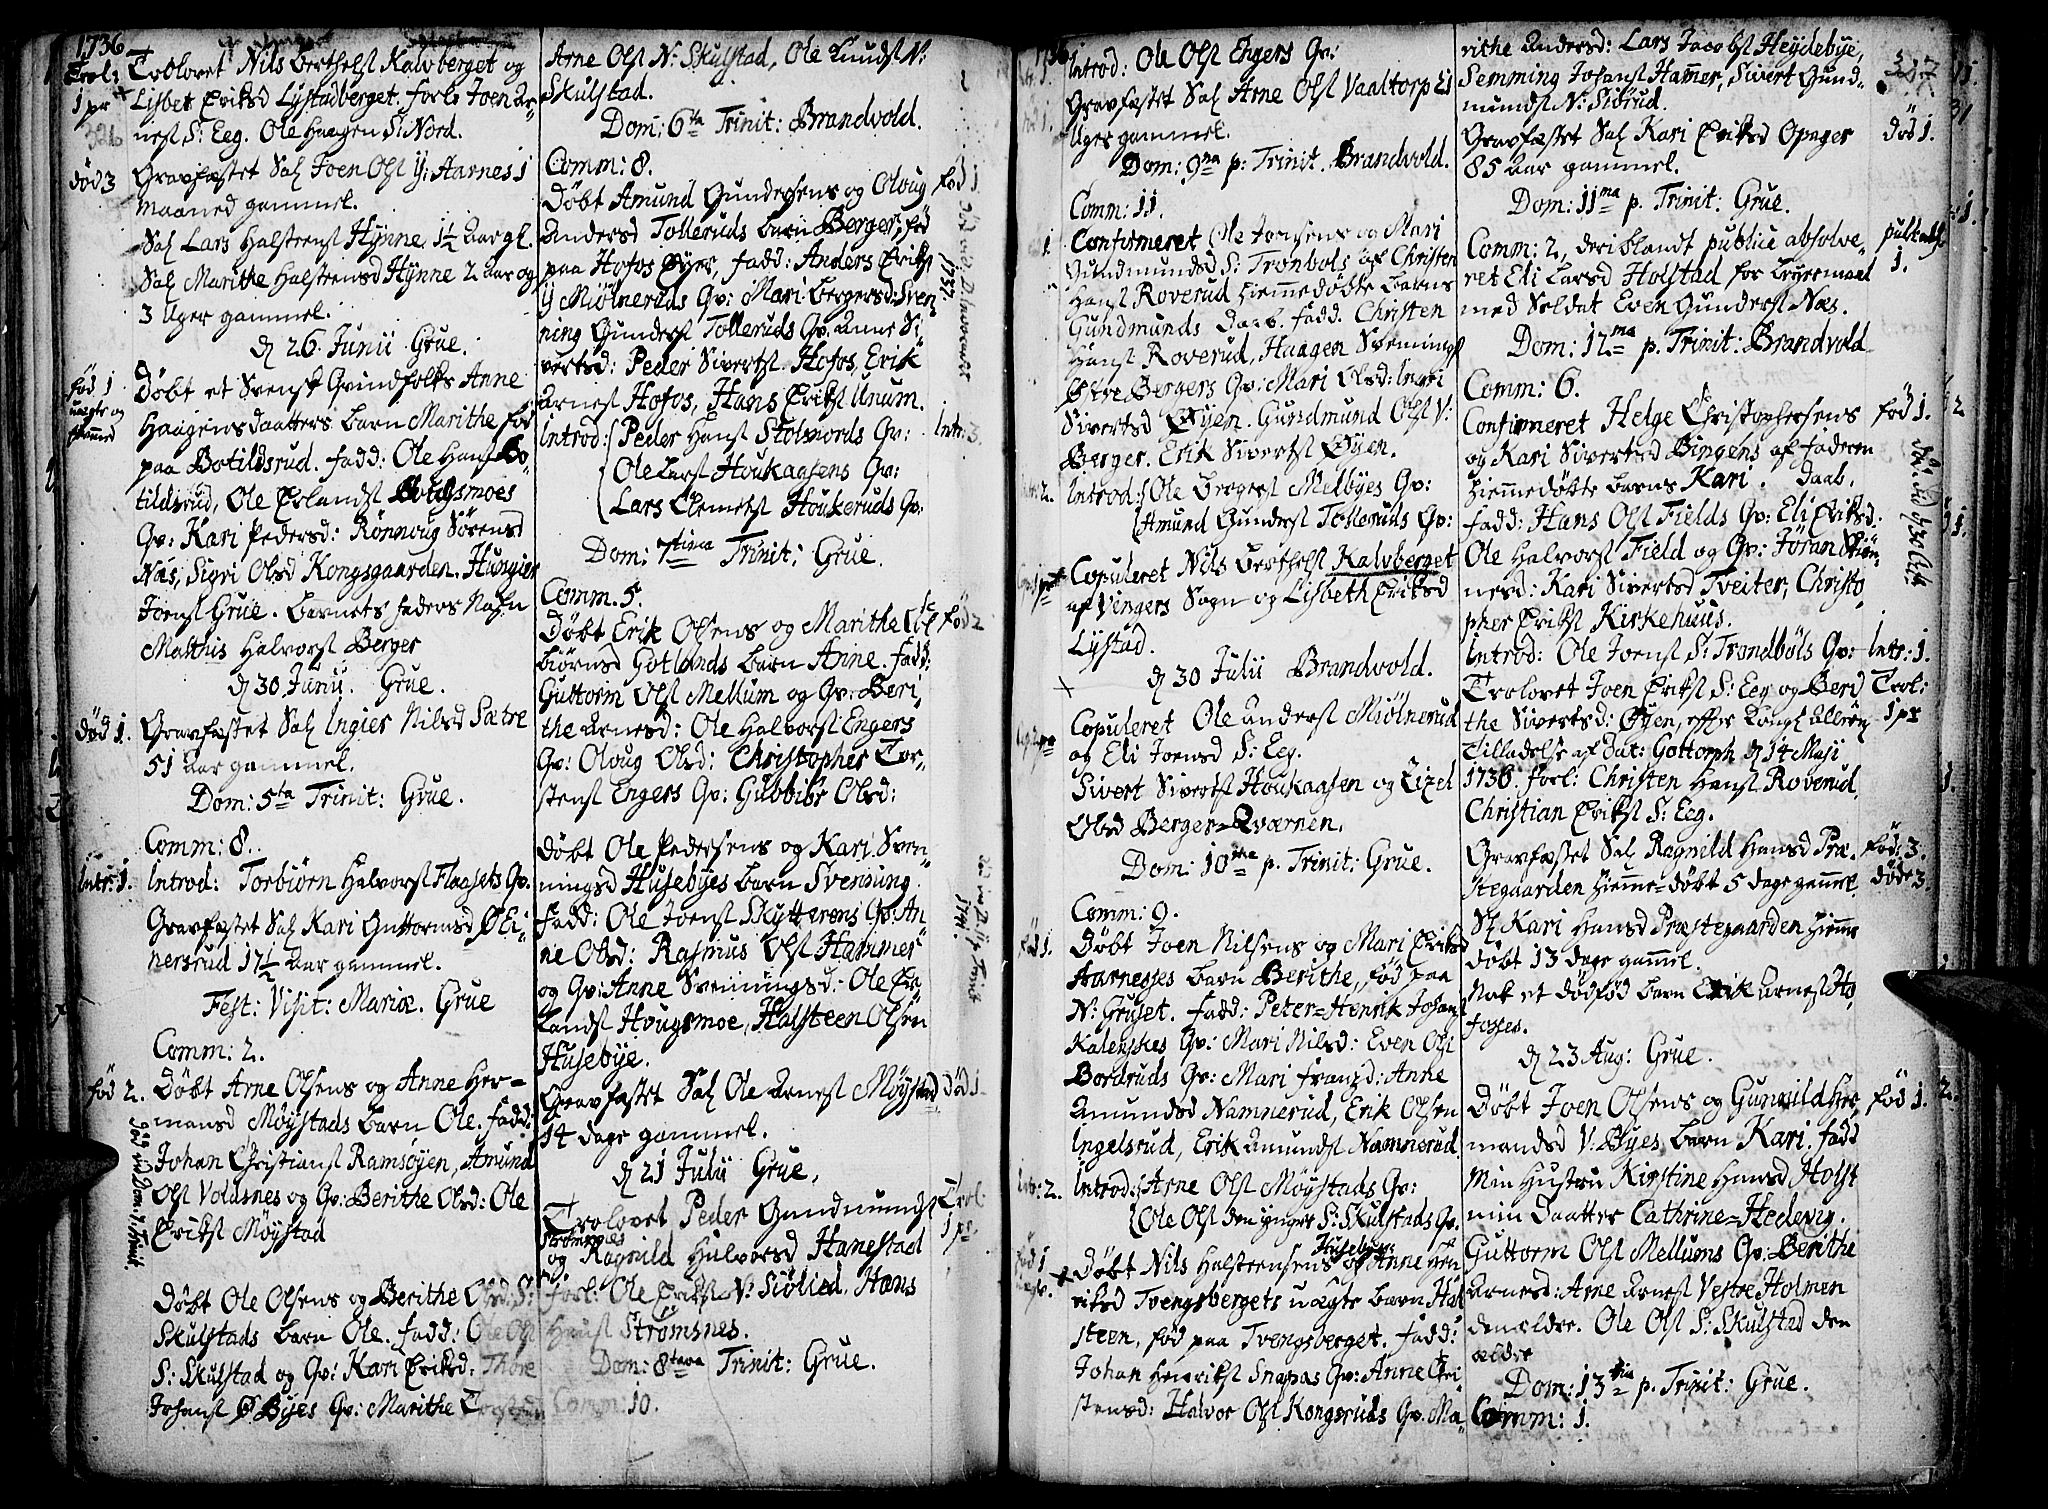 1736
Trol:
1 pr
Trolovet Nils Berthelst Kalvberget og
Lisbet Eriksd Lystadberget. forl: Joen Ar-
nest S: Eeg. Ole Haagenst S: Nord.
død 3
Gravfæstet Sal Joen Olst Y: Aarnes 1
maaned gammel.
Sal Lars Halstenst Hynne 1½ Aar gl.
Sal Marithe Halstensd Hynne 2 aar og
3 Uger gammel.
d 26 Junii Grue.
fød 1
uægte og
fremmed
Døbt et Svensk Qvindfolks Anne
Haagensdaatters barn Marithe fød
paa Botildsrud. fadd: Ole Hanst Bo-
tildsrud, Ole Erlandst Hougsmoes
Qv: Kari Pedersd: Rönnoug Sørensd
Næs, Sigri Olsd Kongsgaarden. Hungier
Joenst Grue. barnets faders Nafn
Matthis Halvorst Berger
d 30 Junii. Grue.
død 1.
Gravfæstet Sal Ingier Nilsd Sætre
51 aar gammel.
Dom: 5ta Trinit: Grue.
Comm: 8.
Intr: 1.
Introd: Torbiörn Halvorst Flaasets Qv.
Gravfæstet Sal Kari Guttormsd Ei-
nersrud 17½ aar gammel.
Fest: Visit: Mariæ. Grue
Comm: 2.
fød 2.
Døbt Arne Olsens og Anne Her-
mansd Møystads barn Ole. fadd:
Johan Christianst Ramsøyen, Amund
Olst Voldsnes og Qv: Berithe Olsd: Ole
Erikst Møystad
Døbt Ole Olsens og Berithe Olsd: S:
Skulstads barn Ole. fadd: Ole Olst
S: Skulstad og Qv: Kari Eriksd: Thore
Johanst Ø Byes Qv: Marithe
Arne Olst N: Skulstad, Ole Knudst N:
Skulstad.
Dom: 6ta Trinit: Brandvold.
Comm: 8.
fød 1.
Døbt Amund Gundersens og Oloug
Andersd Tolleruds barn Berger, fød
paa Hofos Øyer, fadd: Anders Erikst
Y Miölneruds Qv: Mari Bergersd: Sven-
ning Gunderst Tolleruds Qv. Anne Si-
vertsd: Peder Sivertst Hofos, Erik
Arnest Hofos, Hans Erikst Unum.
Intr: 3.
Introd: Peder Hanst Stolmords Qv:
Ole Larst Houkaasens Qv:
Lars Clemetst Houkeruds Qv:
Dom: 7tima Trinit: Grue.
Comm. 5.
fød 2
Døbt Erik Olsens og Marithe
biörnsd Gotlands barn Arne. fadd:
Guttorm Olst Mellum og Qv: Beri-
the Arnesd: Ole Halvorst Engers
Qv: Oloug Olsd: Christopher Tor-
stenst Engers Qv: Gubbibr Olsd:
Døbt Ole Pedersens og Kari Sven-
ningsd Husebyes barn Svennung.
fadd: Ole Joenst Skytterens Qv: An-
ne Olsd: Rasmus Olst Hammer
og Qv: Anne Svenningsd: Ole Er-
landst Hougsmoe, Halsteen Olsen
Husebye.
død 1.
Gravfæstet Sal Ole Arnest Møystad
14 dage gammel.
d 21 Julii Grue,
Trol:
1 pr.
Trolovet Peder Gundmundst
Strømsnes
og Ragnild Halvorsd Hanestad
forl: Ole Erikst N: Siölied. Hans
Hanst Strömsnes.
Dom: 8tava Trinit: Grue.
Comm: 10.
Introd: Ole Olst Engers Qv:
Gravfæstet Sal Arne Olst Vaaltorp 21
Uger gammel.
Dom: 9na p: Trinit. Brandvold.
Comm: 11.
Confirmeret Ole Joensens og Mari
Gundmundsd S: Trönbols af Christen
Hanst Roverud hiemmedøbte barns
Gundmunds daab. fadd. Christen
Hanst Roverud, Haagen Svenningst
Østre Bergers Qv: Mari Olsd: Ingri
Sivertsd Øyen. Gundmund Olst V:
Berger. Erik Sivertst Øyen.
Introd: Ole Bergerst Melbyes Qv:
Amund Gunderst Tolleruds Qv:
Copuleret Nils Berthelst Kalvberget
af Vingers Sogn og Lisbeth Eriksd
Lystad.
d 30 Julii Brandvold.
Copuleret Ole Anderst Miölnerud
og Eli Joensd S: Eeg.
Sivert Sivertst Houkaasen og Zizel
Olsd Berger-Qværnen.
Dom: 10ma p. Trinit: Grue.
Comm: 9.
fød 1.
Døbt Joen Nilsens og Mari Eriksd
Aarnesses barn Berithe, fød paa
N: Gruset. fadd: Peter-Henrik Johanst
Kalenskes Qv: Mari Nilsd: Even Olst
Bordruds Qv: Mari Franzd: Anne
Amundsd Namnerud, Erik Olsen
Ingelsrud, Erik Amundst Namnerud
Intr: 2.
Introd: Arne Olst Møystads Qv:
Ole Olst den yngre S: Skulstads Qv.
fød 1
Husebye
Døbt Nils Halstensens og Anne Hen-
riksd Tvengsbergets uægte barn Hal-
steen, fød paa Tvengsberget. fadd:
Johan Henrikst Snapas Qv: Anne Chri-
stensd: Halvor Olst Kongsruds Qv. Ma-
rithe Andersd: Lars Jacobst Heydebye,
Semming Johanst Hammer, Sivert Gund-
mundst N: Sidrud.
død 1.
Gravfæstet Sal Kari Eriksd Opager
85 aar gammel.
Dom: 11ma p. Trinit: Grue.
publ: abs:
1.
Comm: 2, deriblandt publice absolve-
ret Eli Larsd Holstad for Leyermaal
med Soldat Even Gunderst Næs.
Dom: 12ma p. Trinit: Brandvold
Comm: 6.
fød 1.
Confirmeret Helge Christophersens
og Kari Sivertsd Bingens af faderen
hiemmedøbte barns Kari. daab.
fadd: Hans Olst Fields Qv: Eli Eriksd.
Ole Halvorst Field og Qv: Jöran
nesd: Kari Sivertsd Tveiter, Christo-
pher Erikst Kirkehuus.
Intr: 1.
Introd: Ole Joenst S: Trondböls Qv:
Trol:
1 pr
Trolovet Joen Erikst S: Eeg og Beri-
the Sivertsd: Øyen, efter Kongl allern:
Tilladelse af Dat: Gottorph d 14 Maji
1736. forl: Christen Hanst Roverud,
Christian Erikst S: Eeg.
fød: 3.
døde 3.
Gravfæstet Sal Ragnild Hansd Præ-
stegaarden hiemme-døbt 5 dage gammel
Sl Kari Hansd Præstegaarden hiemme
døbt 13 dage gammel.
Nok et dødfød barn Erik Arnest Ho-
fosses.
d 23 Aug: Grue.
fød 1.
Døbt Joen Olsens og Gunnild Her-
mandsd V: Byes barn Kari. fadd
Min Hustru Kirstine Hansd Holst
min daatter Cathrine-Hedevig.
Guttorm Olst Mellums Qv: Berithe
Arnesd: Arne Arnest Vestre Holmen
den ældre. Ole Olst S: Skulstad den
ældre
Dom: 13tia p. Trinit: Grue.
Comm: 1.